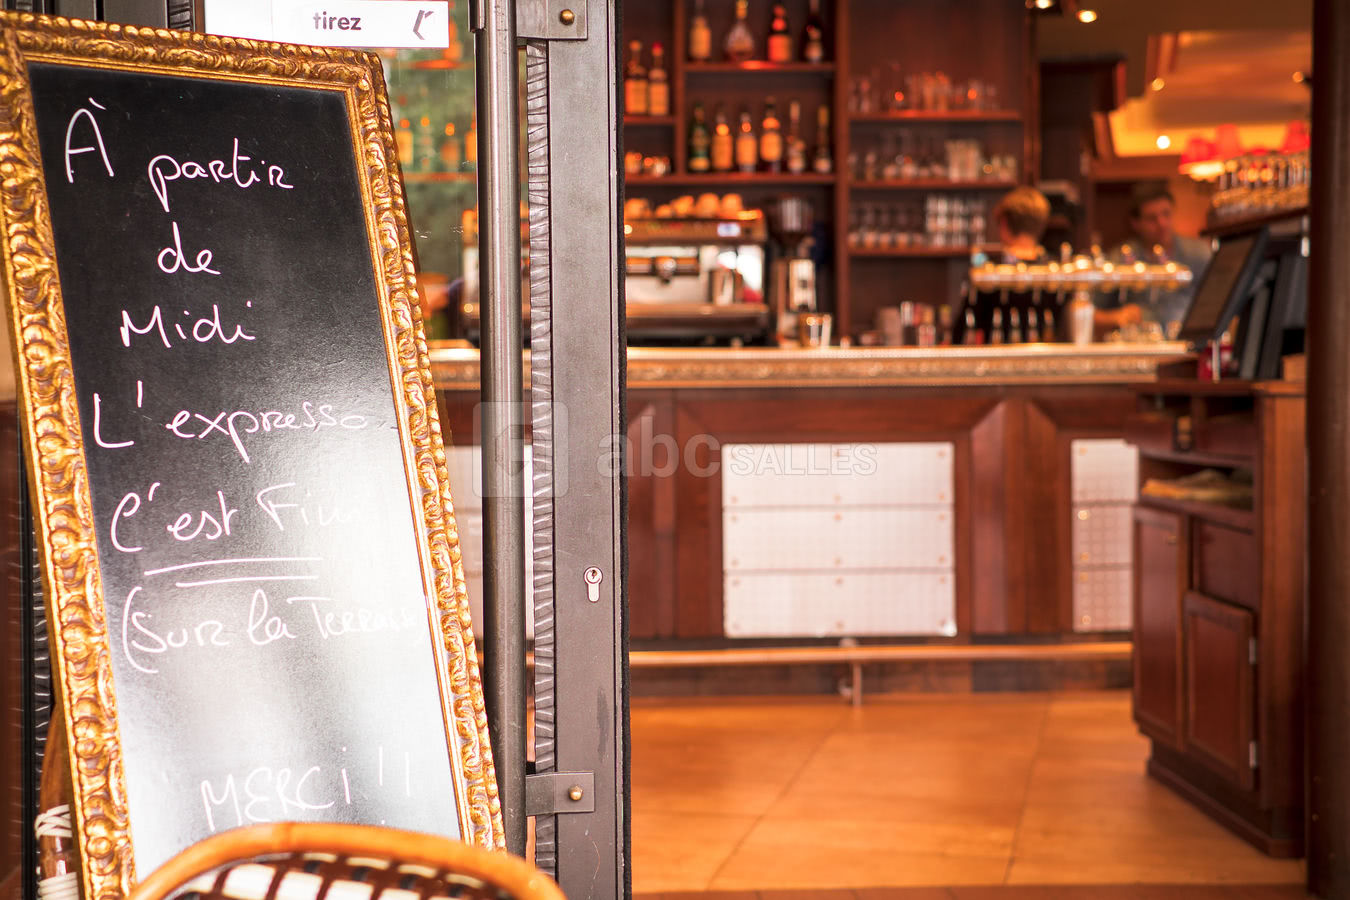 tirez
À partir
de
Midi
L'expresso
C'est Fini
(Sur la Terrasse)
MERCI !!
abc SALLES